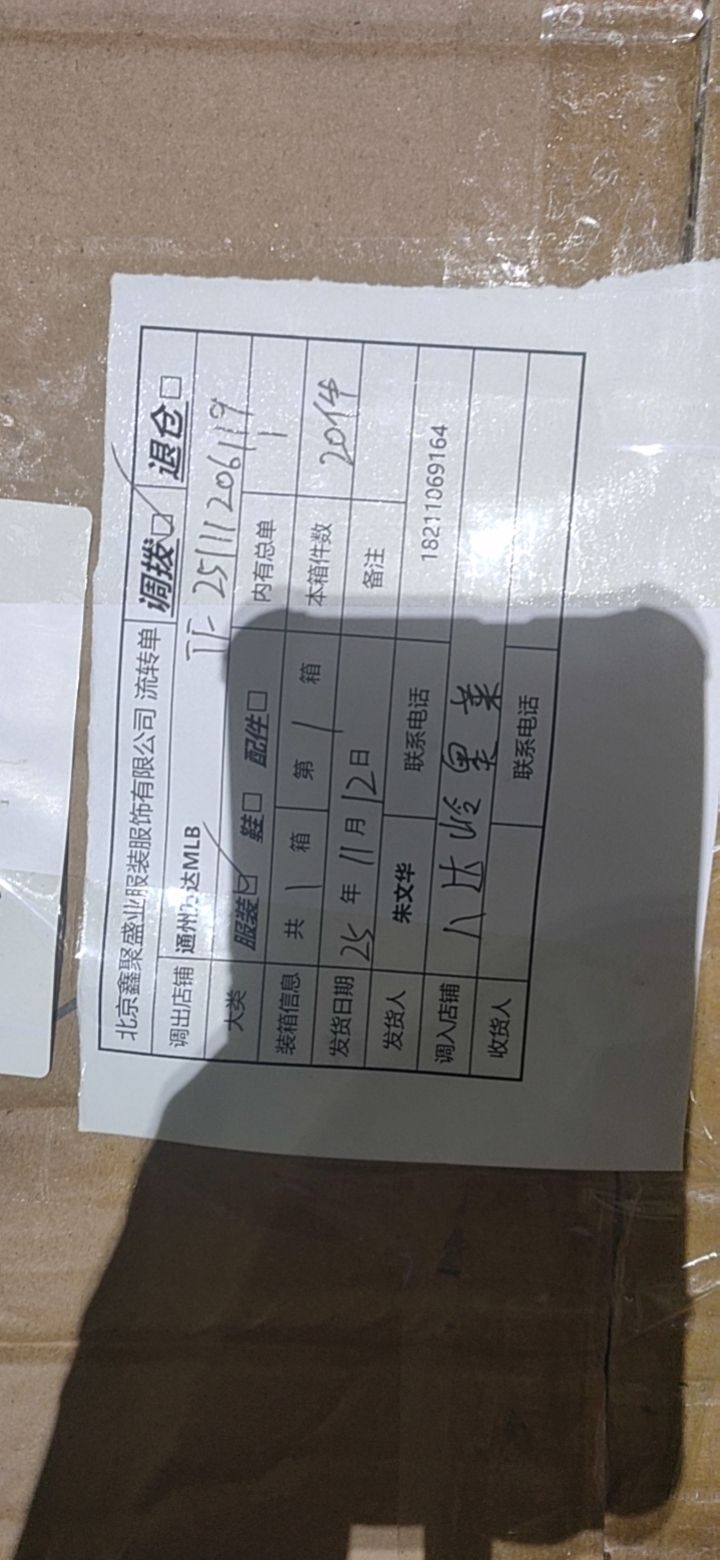 北京鑫聚盛业服装服饰有限公司 流转单 调拨☑ 退仓□
调出店铺 通州万达MLB TF 25111206119
大类 服装☑ 鞋□ 配件□ 内有总单 1
装箱信息 共 1 箱 第 1 箱 本箱件数 20件
发货日期 25 年 11 月 12 日 备注
发货人 朱文华 联系电话 18211069164
调入店铺 八达岭奥莱
收货人 联系电话